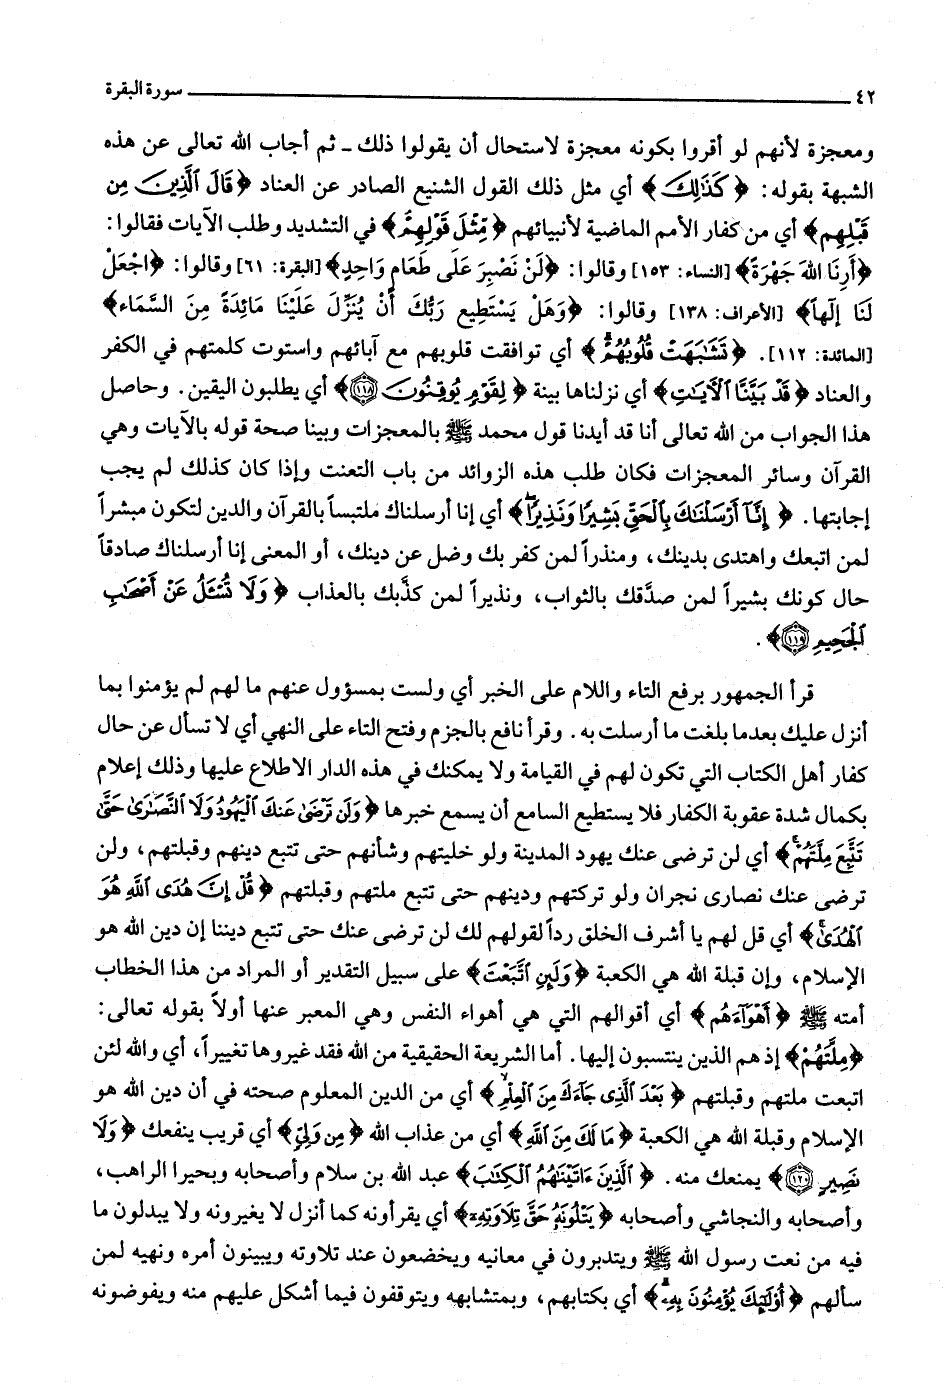 ٤٢ سورة البقرة
ومعجزة لأنهم لو أقروا بكونه معجزة لاستحال أن يقولوا ذلك ـ ثم أجاب الله تعالى عن هذه
الشبهة بقوله: ﴿ كَذَٰلِكَ ﴾ أي مثل ذلك القول الشنيع الصادر عن العناد ﴿ قَالَ ٱلَّذِينَ مِن
قَبْلِهِم ﴾ أي من كفار الأمم الماضية لأنبيائهم ﴿ مِّثْلَ قَوْلِهِمْ ﴾ في التشديد وطلب الآيات فقالوا:
﴿أَرِنَا اللهَ جَهْرَةً﴾ [النساء: ١٥٣] وقالوا: ﴿لَنْ نَصْبِرَ عَلَى طَعَامٍ وَاحِدٍ﴾ [البقرة: ٦١] وقالوا: ﴿اجْعَلْ
لَنَا إِلَهاً﴾ [الأعراف: ١٣٨] وقالوا: ﴿وَهَلْ يَسْتَطِيع رَبُّكَ أَنْ يُنَزِّلَ عَلَيْنَا مَائِدَةً مِنَ السَّمَاء﴾
[المائدة: ١١٢]. ﴿ تَشَٰبَهَتْ قُلُوبُهُمْ ﴾ أي توافقت قلوبهم مع آبائهم واستوت كلمتهم في الكفر
والعناد ﴿ قَدْ بَيَّنَّا ٱلْآيَٰتِ ﴾ أي نزلناها بينة ﴿ لِقَوْمٍ يُوقِنُونَ ١١٨ ﴾ أي يطلبون اليقين. وحاصل
هذا الجواب من الله تعالى أنا قد أيدنا قول محمد ﷺ بالمعجزات وبينا صحة قوله بالآيات وهي
القرآن وسائر المعجزات فكان طلب هذه الزوائد من باب التعنت وإذا كان كذلك لم يجب
إجابتها. ﴿ إِنَّآ أَرْسَلْنَٰكَ بِٱلْحَقِّ بَشِيرًا وَنَذِيرًا ﴾ أي إنا أرسلناك ملتبساً بالقرآن والدين لتكون مبشراً
لمن اتبعك واهتدى بدينك، ومنذراً لمن كفر بك وضل عن دينك، أو المعنى إنا أرسلناك صادقاً
حال كونك بشيراً لمن صدَّقك بالثواب، ونذيراً لمن كذَّبك بالعذاب ﴿ وَلَا تُسْـَٔلُ عَنْ أَصْحَٰبِ
ٱلْجَحِيمِ ١١٩ ﴾.
قرأ الجمهور برفع التاء واللام على الخبر أي ولست بمسؤول عنهم ما لهم لم يؤمنوا بما
أنزل عليك بعدما بلغت ما أرسلت به. وقرأ نافع بالجزم وفتح التاء على النهي أي لا تسأل عن حال
كفار أهل الكتاب التي تكون لهم في القيامة ولا يمكنك في هذه الدار الاطلاع عليها وذلك إعلام
بكمال شدة عقوبة الكفار فلا يستطيع السامع أن يسمع خبرها ﴿ وَلَن تَرْضَىٰ عَنكَ ٱلْيَهُودُ وَلَا ٱلنَّصَٰرَىٰ حَتَّىٰ
تَتَّبِعَ مِلَّتَهُمْ ﴾ أي لن ترضى عنك يهود المدينة ولو خليتهم وشأنهم حتى تتبع دينهم وقبلتهم، ولن
ترضى عنك نصارى نجران ولو تركتهم ودينهم حتى تتبع ملتهم وقبلتهم ﴿ قُلْ إِنَّ هُدَى ٱللَّهِ هُوَ
ٱلْهُدَىٰ ﴾ أي قل لهم يا أشرف الخلق رداً لقولهم لك لن ترضى عنك حتى تتبع ديننا إن دين الله هو
الإسلام، وإن قبلة الله هي الكعبة ﴿ وَلَئِنِ ٱتَّبَعْتَ ﴾ على سبيل التقدير أو المراد من هذا الخطاب
أمته ﷺ ﴿ أَهْوَآءَهُم ﴾ أي أقوالهم التي هي أهواء النفس وهي المعبر عنها أولاً بقوله تعالى:
﴿مِلَّتَهُمْ﴾ إذ هم الذين ينتسبون إليها. أما الشريعة الحقيقية من الله فقد غيروها تغييراً، أي والله لئن
اتبعت ملتهم وقبلتهم ﴿ بَعْدَ ٱلَّذِى جَآءَكَ مِنَ ٱلْعِلْمِ ﴾ أي من الدين المعلوم صحته في أن دين الله هو
الإسلام وقبلة الله هي الكعبة ﴿ مَا لَكَ مِنَ ٱللَّهِ ﴾ أي من عذاب الله ﴿ مِن وَلِىٍّ ﴾ أي قريب ينفعك ﴿ وَلَا
نَصِيرٍ ١٢٠ ﴾ يمنعك منه. ﴿ ٱلَّذِينَ ءَاتَيْنَٰهُمُ ٱلْكِتَٰبَ ﴾ عبد الله بن سلام وأصحابه وبحيرا الراهب،
وأصحابه والنجاشي وأصحابه ﴿ يَتْلُونَهُۥ حَقَّ تِلَاوَتِهِۦٓ ﴾ أي يقرأونه كما أنزل لا يغيرونه ولا يبدلون ما
فيه من نعت رسول الله ﷺ ويتدبرون في معانيه ويخضعون عند تلاوته ويبينون أمره ونهيه لمن
سألهم ﴿ أُو۟لَٰٓئِكَ يُؤْمِنُونَ بِهِۦ ﴾ أي بكتابهم، وبمتشابهه ويتوقفون فيما أشكل عليهم منه ويفوضونه